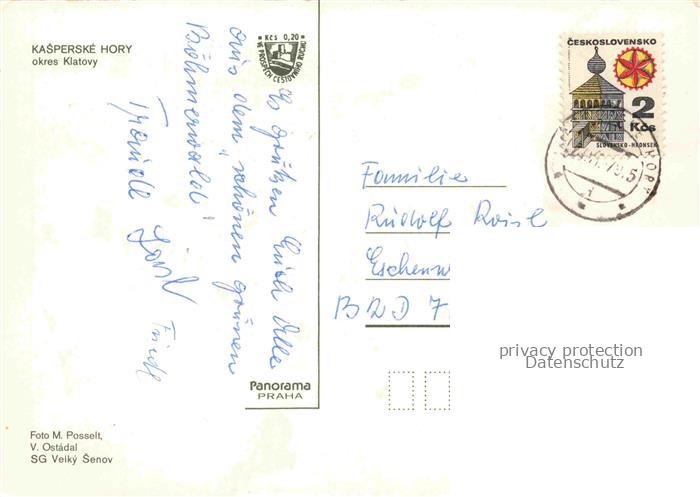 KAŠPERSKÉ HORY
okres Klatovy
Kčs 0,20
VE PROSPĚCH CESTOVNÍHO RUCHU
Es grüßen Euch Alle
aus dem „schönen grünen
Böhmerwald!
Traudl
Friedl
Panorama
PRAHA
Foto M. Posselt,
V. Ostádal
SG Velký Šenov
ČESKOSLOVENSKO
2
Kčs
SLOVENSKO-HRONSEK
HORY
Familie
Rudolf
Eschenw
BRD 7
privacy protection
Datenschutz